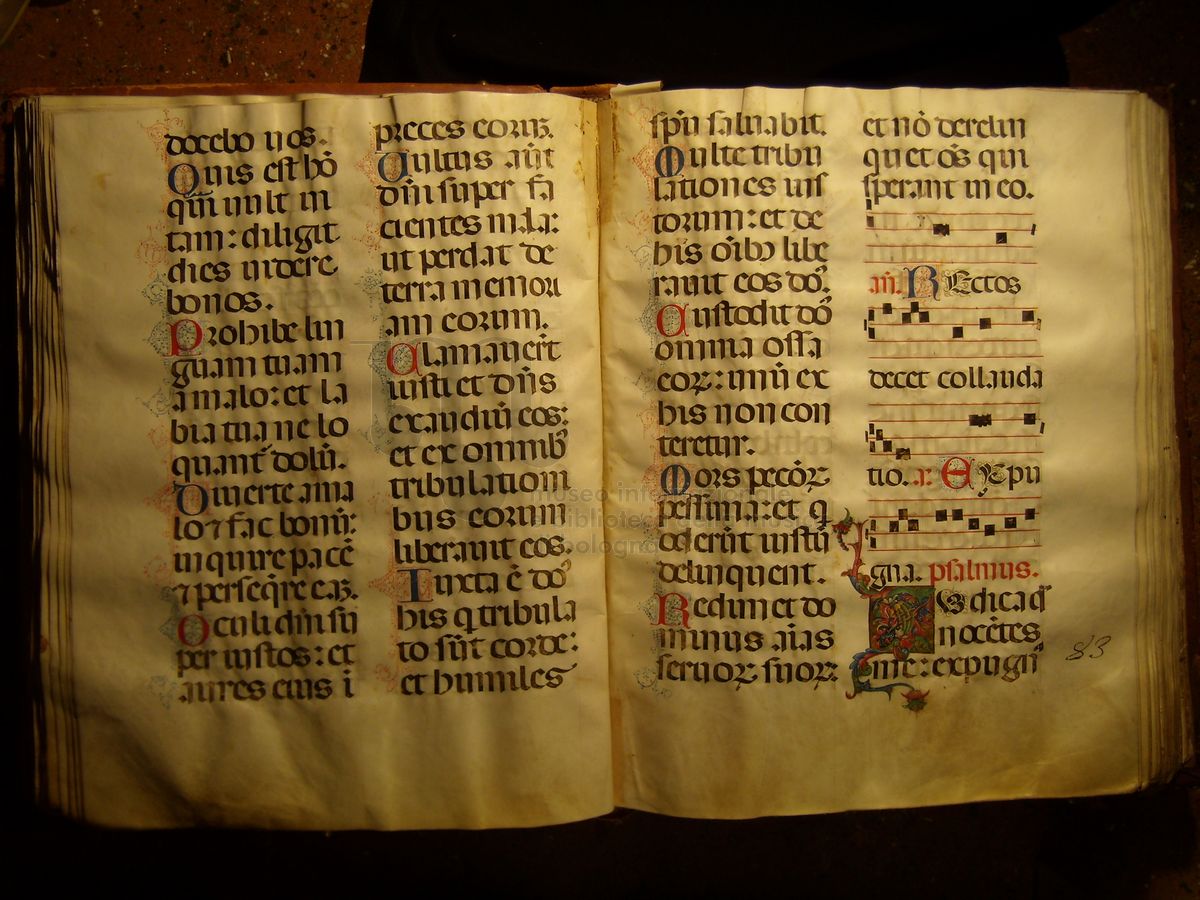 docebo uos.
Quis est hō
qui uult ui
tam: diligit
dies uidere
bonos.
Prohibe lin
guam tuam
a malo: et la
bia tua ne lo
quant̄ dolū.
Diuerte a ma
lo ⁊ fac bonū:
inquire pacē
⁊ perseq̄re eaꝫ.
Oculi dn̄i su
per iustos: et
aures eius ī
preces eorūꝫ.
Uultus aūt
dn̄i super fa
cientes mala:
ut perdat de
terra memori
am eorum.
Clamauerūt
iusti et dn̄s
exaudiuī eos:
et ex omnibꝰ
tribulationi
bus eorum
liberauit eos.
Iuxta ē do
his q tribula
to sūt corde:
et humiles
spū saluabit.
Multe tribu
lationes ius
torum: et de
his oībꝰ libe
rauit eos dō.
Custodit dō
omnia ossa
eoꝝ: unū ex
his non con
teretur.
Mors pecōꝝ
pessima: et q
oderūt iustū
delinquent.
Redimet do
minus aīas
seruoꝝ suoꝝ:
et nō derelin
quet oēs qui
sperant in eo.
an̄. Rectos
decet collauda
tio. a. Expu
gna. psalmus.
Iudica dn̄
nocētes
me: expugn̄
83
museo internazionale
biblioteca della musica
bologna